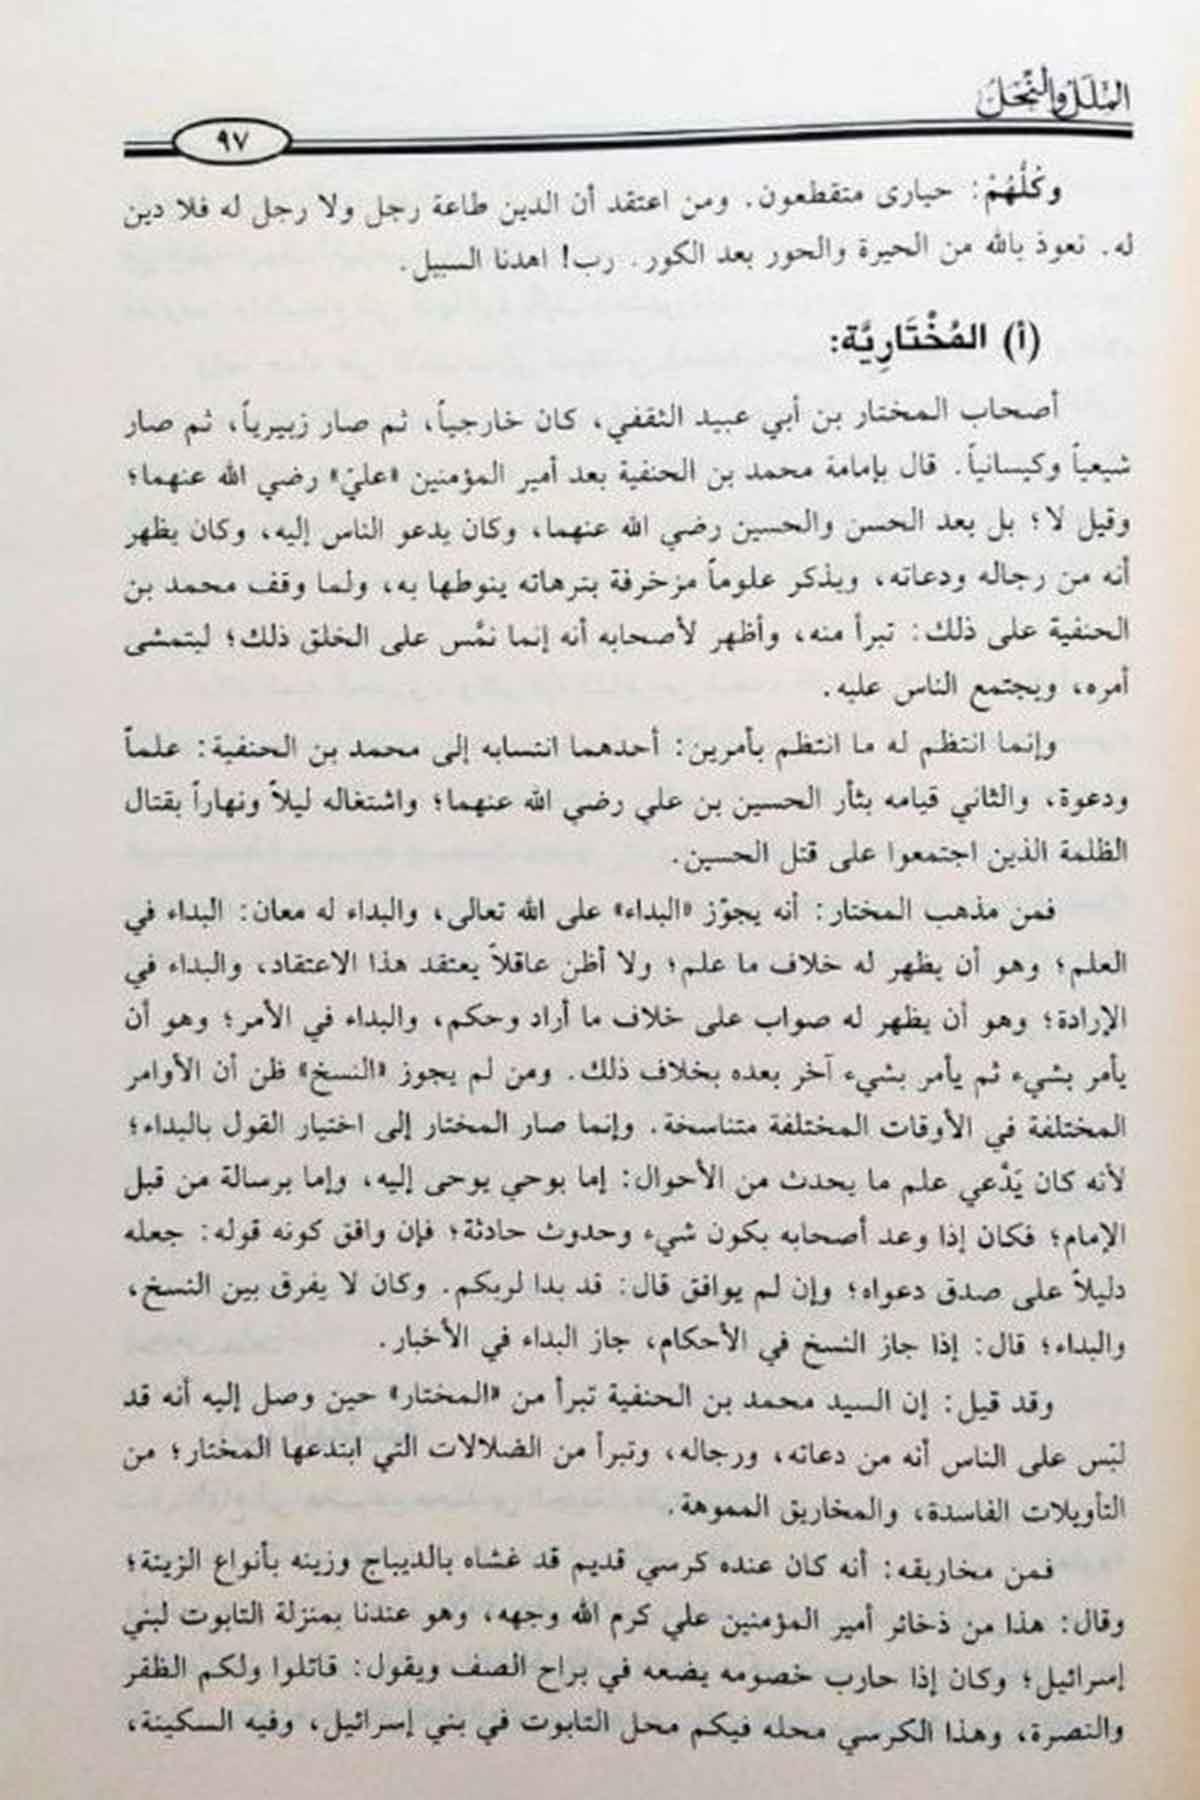 الملل والنحل
٩٧
وكُلُّهُمْ: حيارى متقطعون. ومن اعتقد أن الدين طاعة رجل ولا رجل له فلا دين
له. نعوذ بالله من الحيرة والحور بعد الكور. رب! اهدنا السبيل.
(أ) المُخْتَارِيَّة:
أصحاب المختار بن أبي عبيد الثقفي، كان خارجياً، ثم صار زبيرياً، ثم صار
شيعياً وكيسانياً. قال بإمامة محمد بن الحنفية بعد أمير المؤمنين «عليّ» رضي الله عنهما؛
وقيل لا؛ بل بعد الحسن والحسين رضي الله عنهما، وكان يدعو الناس إليه، وكان يظهر
أنه من رجاله ودعاته، ويذكر علوماً مزخرفة بترهاته ينوطها به، ولما وقف محمد بن
الحنفية على ذلك: تبرأ منه، وأظهر لأصحابه أنه إنما نمَّس على الخلق ذلك؛ ليتمشى
أمره، ويجتمع الناس عليه.
وإنما انتظم له ما انتظم بأمرين: أحدهما انتسابه إلى محمد بن الحنفية: علماً
ودعوة، والثاني قيامه بثأر الحسين بن علي رضي الله عنهما؛ واشتغاله ليلاً ونهاراً بقتال
الظلمة الذين اجتمعوا على قتل الحسين.
فمن مذهب المختار: أنه يجوّز «البداء» على الله تعالى، والبداء له معان: البداء في
العلم؛ وهو أن يظهر له خلاف ما علم؛ ولا أظن عاقلاً يعتقد هذا الاعتقاد، والبداء في
الإرادة؛ وهو أن يظهر له صواب على خلاف ما أراد وحكم، والبداء في الأمر؛ وهو أن
يأمر بشيء ثم يأمر بشيء آخر بعده بخلاف ذلك. ومن لم يجوز «النسخ» ظن أن الأوامر
المختلفة في الأوقات المختلفة متناسخة. وإنما صار المختار إلى اختيار القول بالبداء؛
لأنه كان يَدَّعي علم ما يحدث من الأحوال: إما بوحي يوحى إليه، وإما برسالة من قبل
الإمام؛ فكان إذا وعد أصحابه بكون شيء وحدوث حادثة؛ فإن وافق كونه قوله: جعله
دليلاً على صدق دعواه؛ وإن لم يوافق قال: قد بدا لربكم. وكان لا يفرق بين النسخ،
والبداء؛ قال: إذا جاز النسخ في الأحكام، جاز البداء في الأخبار.
وقد قيل: إن السيد محمد بن الحنفية تبرأ من «المختار» حين وصل إليه أنه قد
لبّس على الناس أنه من دعاته، ورجاله، وتبرأ من الضلالات التي ابتدعها المختار؛ من
التأويلات الفاسدة، والمخاريق المموهة.
فمن مخاريقه: أنه كان عنده كرسي قديم قد غشاه بالديباج وزينه بأنواع الزينة؛
وقال: هذا من ذخائر أمير المؤمنين علي كرم الله وجهه، وهو عندنا بمنزلة التابوت لبني
إسرائيل؛ وكان إذا حارب خصومه يضعه في براح الصف ويقول: قاتلوا ولكم الظفر
والنصرة، وهذا الكرسي محله فيكم محل التابوت في بني إسرائيل، وفيه السكينة،